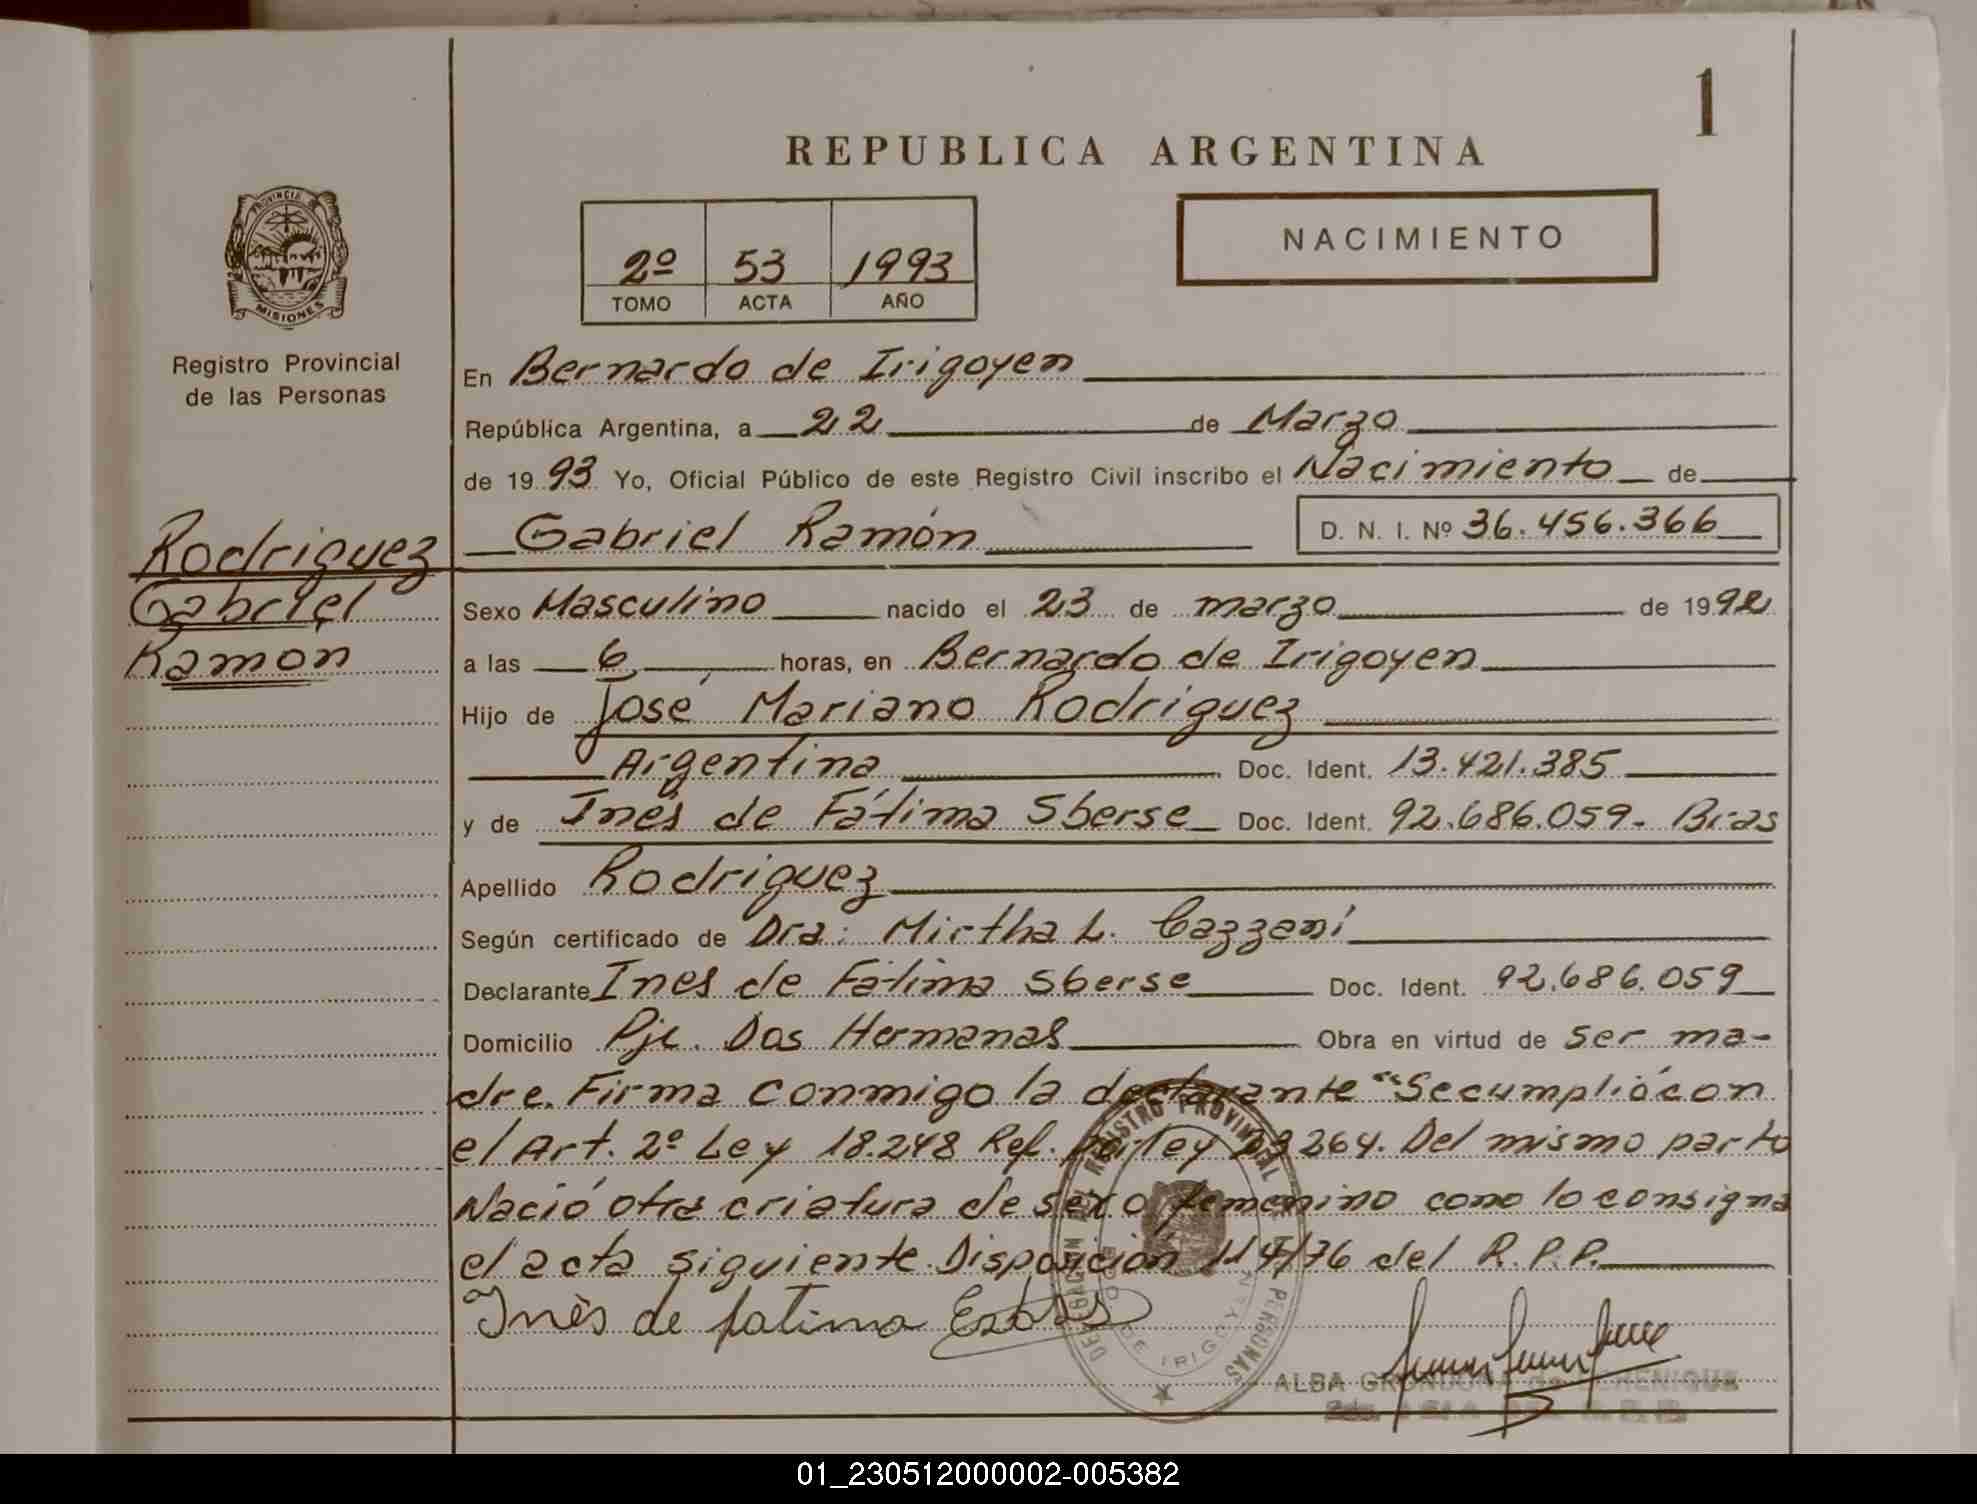 1
REPUBLICA ARGENTINA
PROVINCIA
MISIONES
Registro Provincial
de las Personas
2º 53 1993
TOMO ACTA AÑO
NACIMIENTO
En Bernardo de Irigoyen
República Argentina, a 22 de Marzo
de 19 93 Yo, Oficial Público de este Registro Civil inscribo el Nacimiento de
Gabriel Ramón D. N. I. Nº 36.456.366
Rodriguez
Gabriel
Ramón
Sexo Masculino nacido el 23 de marzo de 1992
a las 6 horas, en Bernardo de Irigoyen
Hijo de José Mariano Rodriguez
Argentina Doc. Ident. 13.421.385
y de Inés de Fátima Sberse Doc. Ident. 92.686.059- Bras
Apellido Rodriguez
Según certificado de Dra: Mirtha L. Cazzani
Declarante Ines de Fátima Sberse Doc. Ident. 92.686.059
Domicilio Pje. Dos Hermanas Obra en virtud de ser ma-
dre. Firma conmigo la declarante "Se cumplió con
el Art. 2º Ley 18.248 Ref. por ley 23264. Del mismo parto
Nació otra criatura de sexo femenino como lo consigna
el acta siguiente. Disposición 114/76 del R.P.P.
Inès de fatima
DELEGACION DEL REGISTRO PROVINCIAL DE LAS PERSONAS
DE IRIGOYEN
ALBA GRONDONA de
01_230512000002-005382